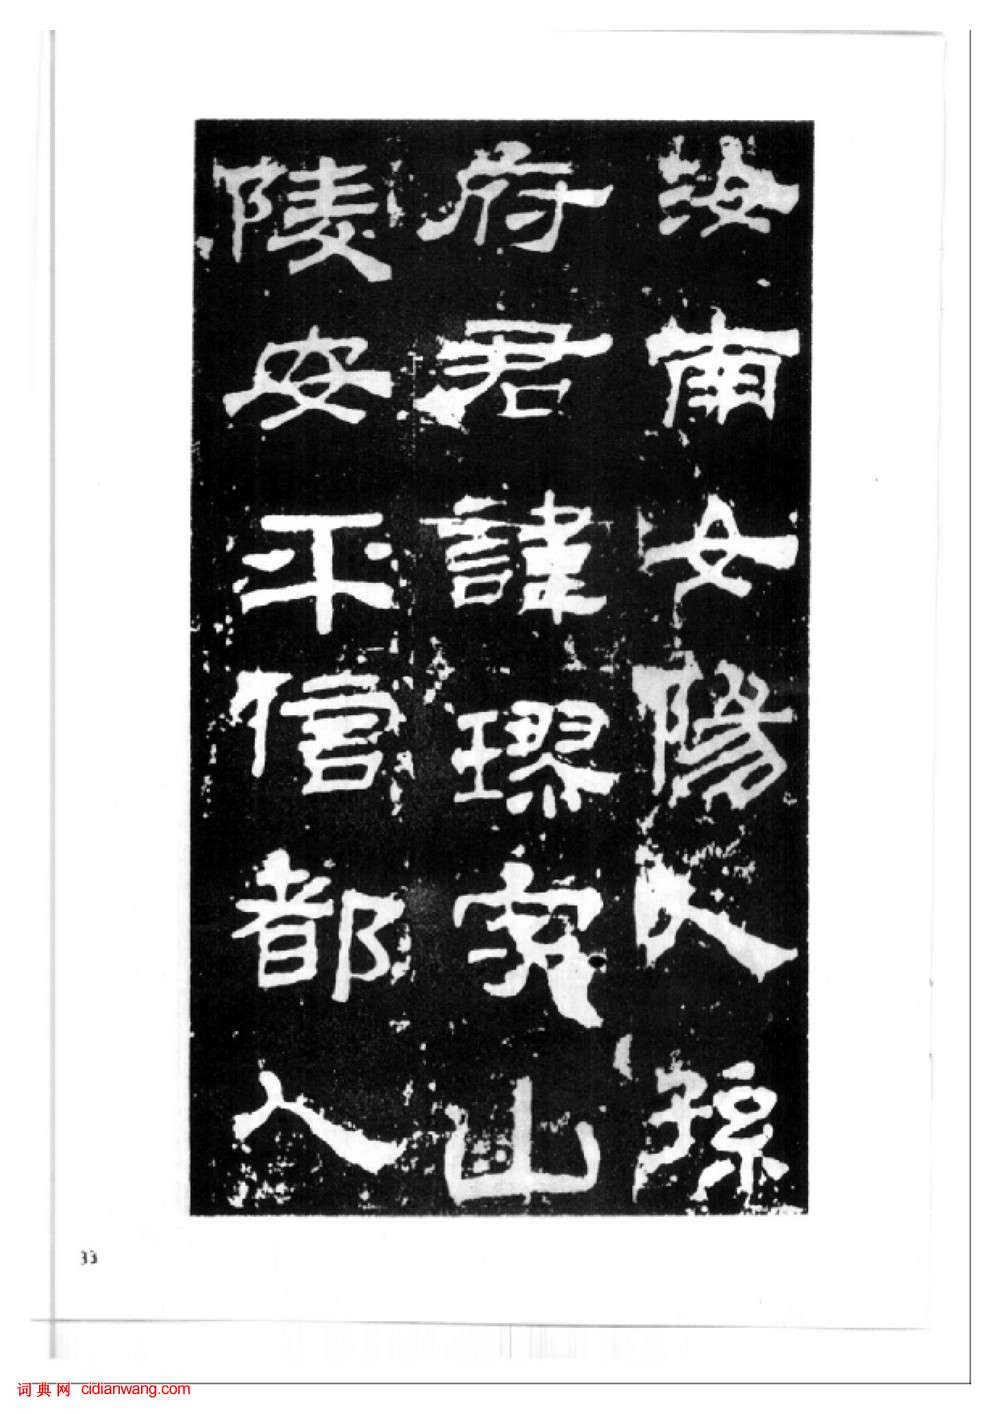 汝南女陽人孫
府君諱璆字山
陵安平信都人
33
词典网 cidianwang.com